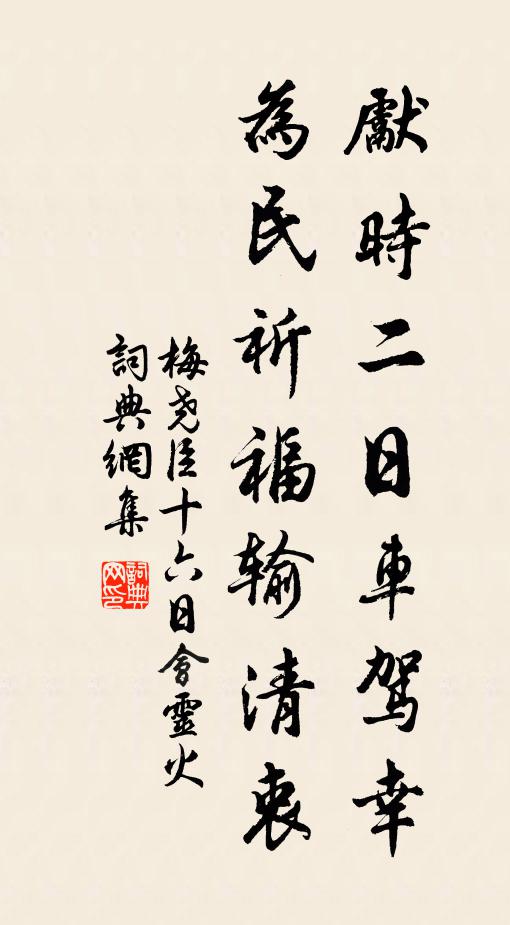 獻時二日車駕幸
為民祈福輸清衷
梅堯臣十六日會靈火
詞典網集
詞典網印